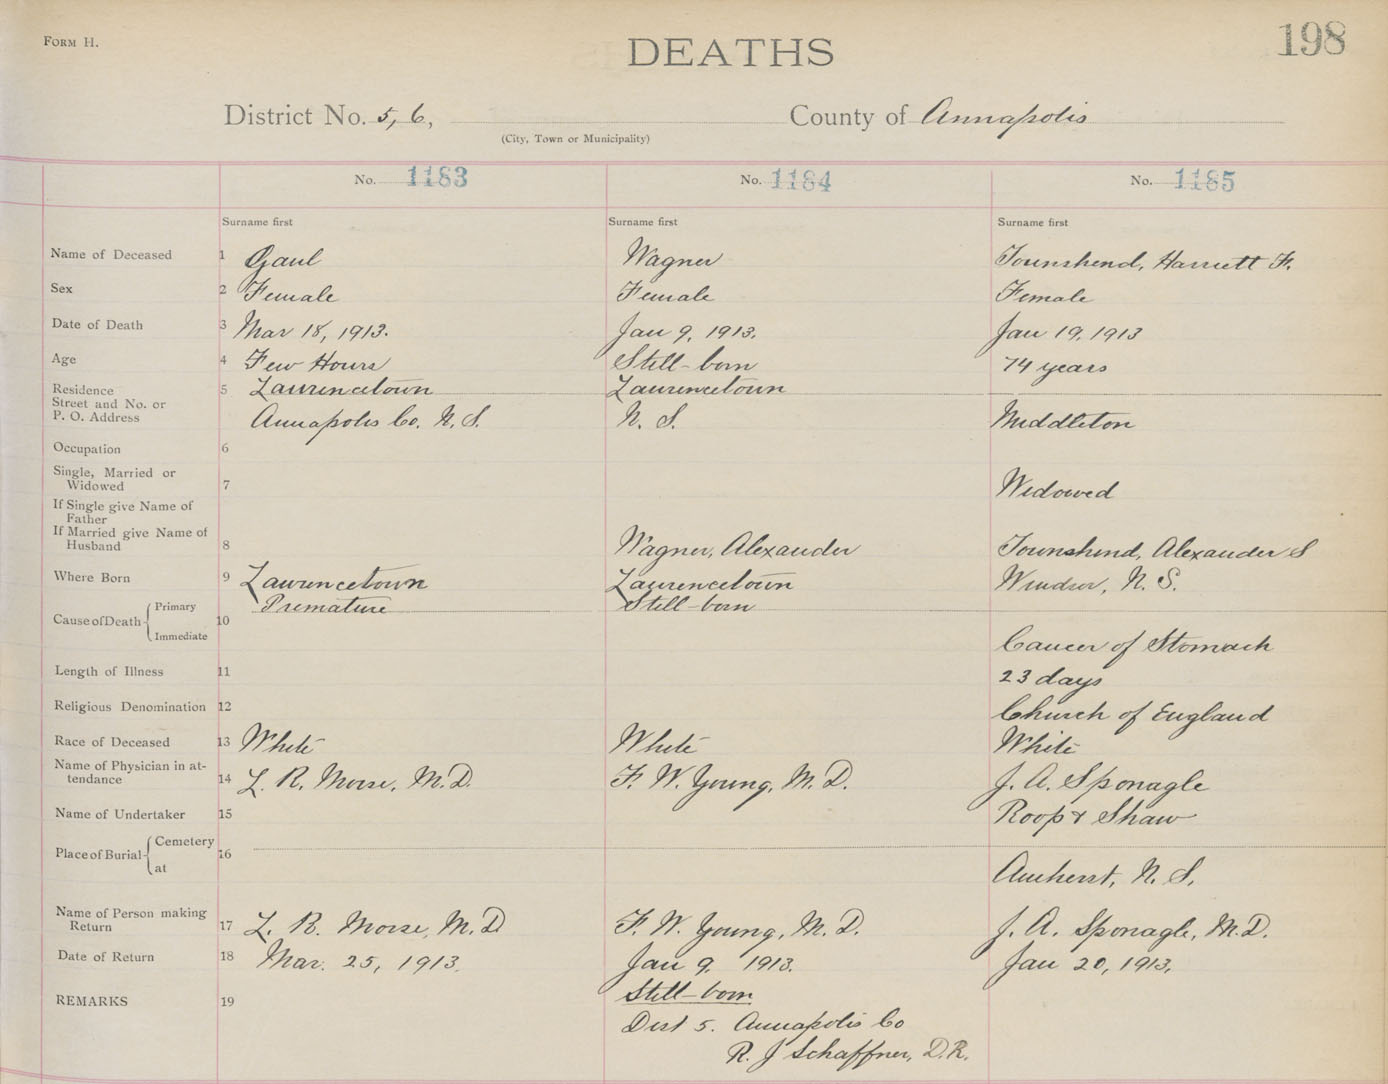 FORM H.
DEATHS
198
District No. 5, 6,
County of Annapolis
(City, Town or Municipality)
No. 1183
No. 1184
No. 1185
Surname first
Surname first
Surname first
Name of Deceased 1 Gaul Wagner Townshend, Harriett F.
Sex 2 Female Female Female
Date of Death 3 Mar 18, 1913. Jan 9, 1913. Jan 19, 1913
Age 4 Few Hours Still-born 74 years
Residence 5 Lawrencetown Lawrencetown
Street and No. or
P. O. Address Annapolis Co. N. S. N. S. Middleton
Occupation 6
Single, Married or
Widowed 7 Widowed
If Single give Name of
Father
If Married give Name of
Husband 8 Wagner, Alexander Townshend, Alexander S
Where Born 9 Lawrencetown Lawrencetown Windsor, N. S.
Cause of Death Primary 10 Premature Still-born
Immediate Cancer of Stomach
Length of Illness 11 23 days
Religious Denomination 12 Church of England
Race of Deceased 13 White White White
Name of Physician in at-
tendance 14 L. R. Morse, M. D. F. W. Young, M. D. J. A. Sponagle
Name of Undertaker 15 Roop & Shaw
Place of Burial Cemetery 16
at Amherst, N. S.
Name of Person making
Return 17 L. R. Morse, M. D F. W. Young, M. D. J. A. Sponagle, M. D.
Date of Return 18 Mar. 25, 1913. Jan 9. 1913. Jan 20, 1913.
REMARKS 19 Still-born
Dist 5. Annapolis Co
R. J Schaffner, D. R.